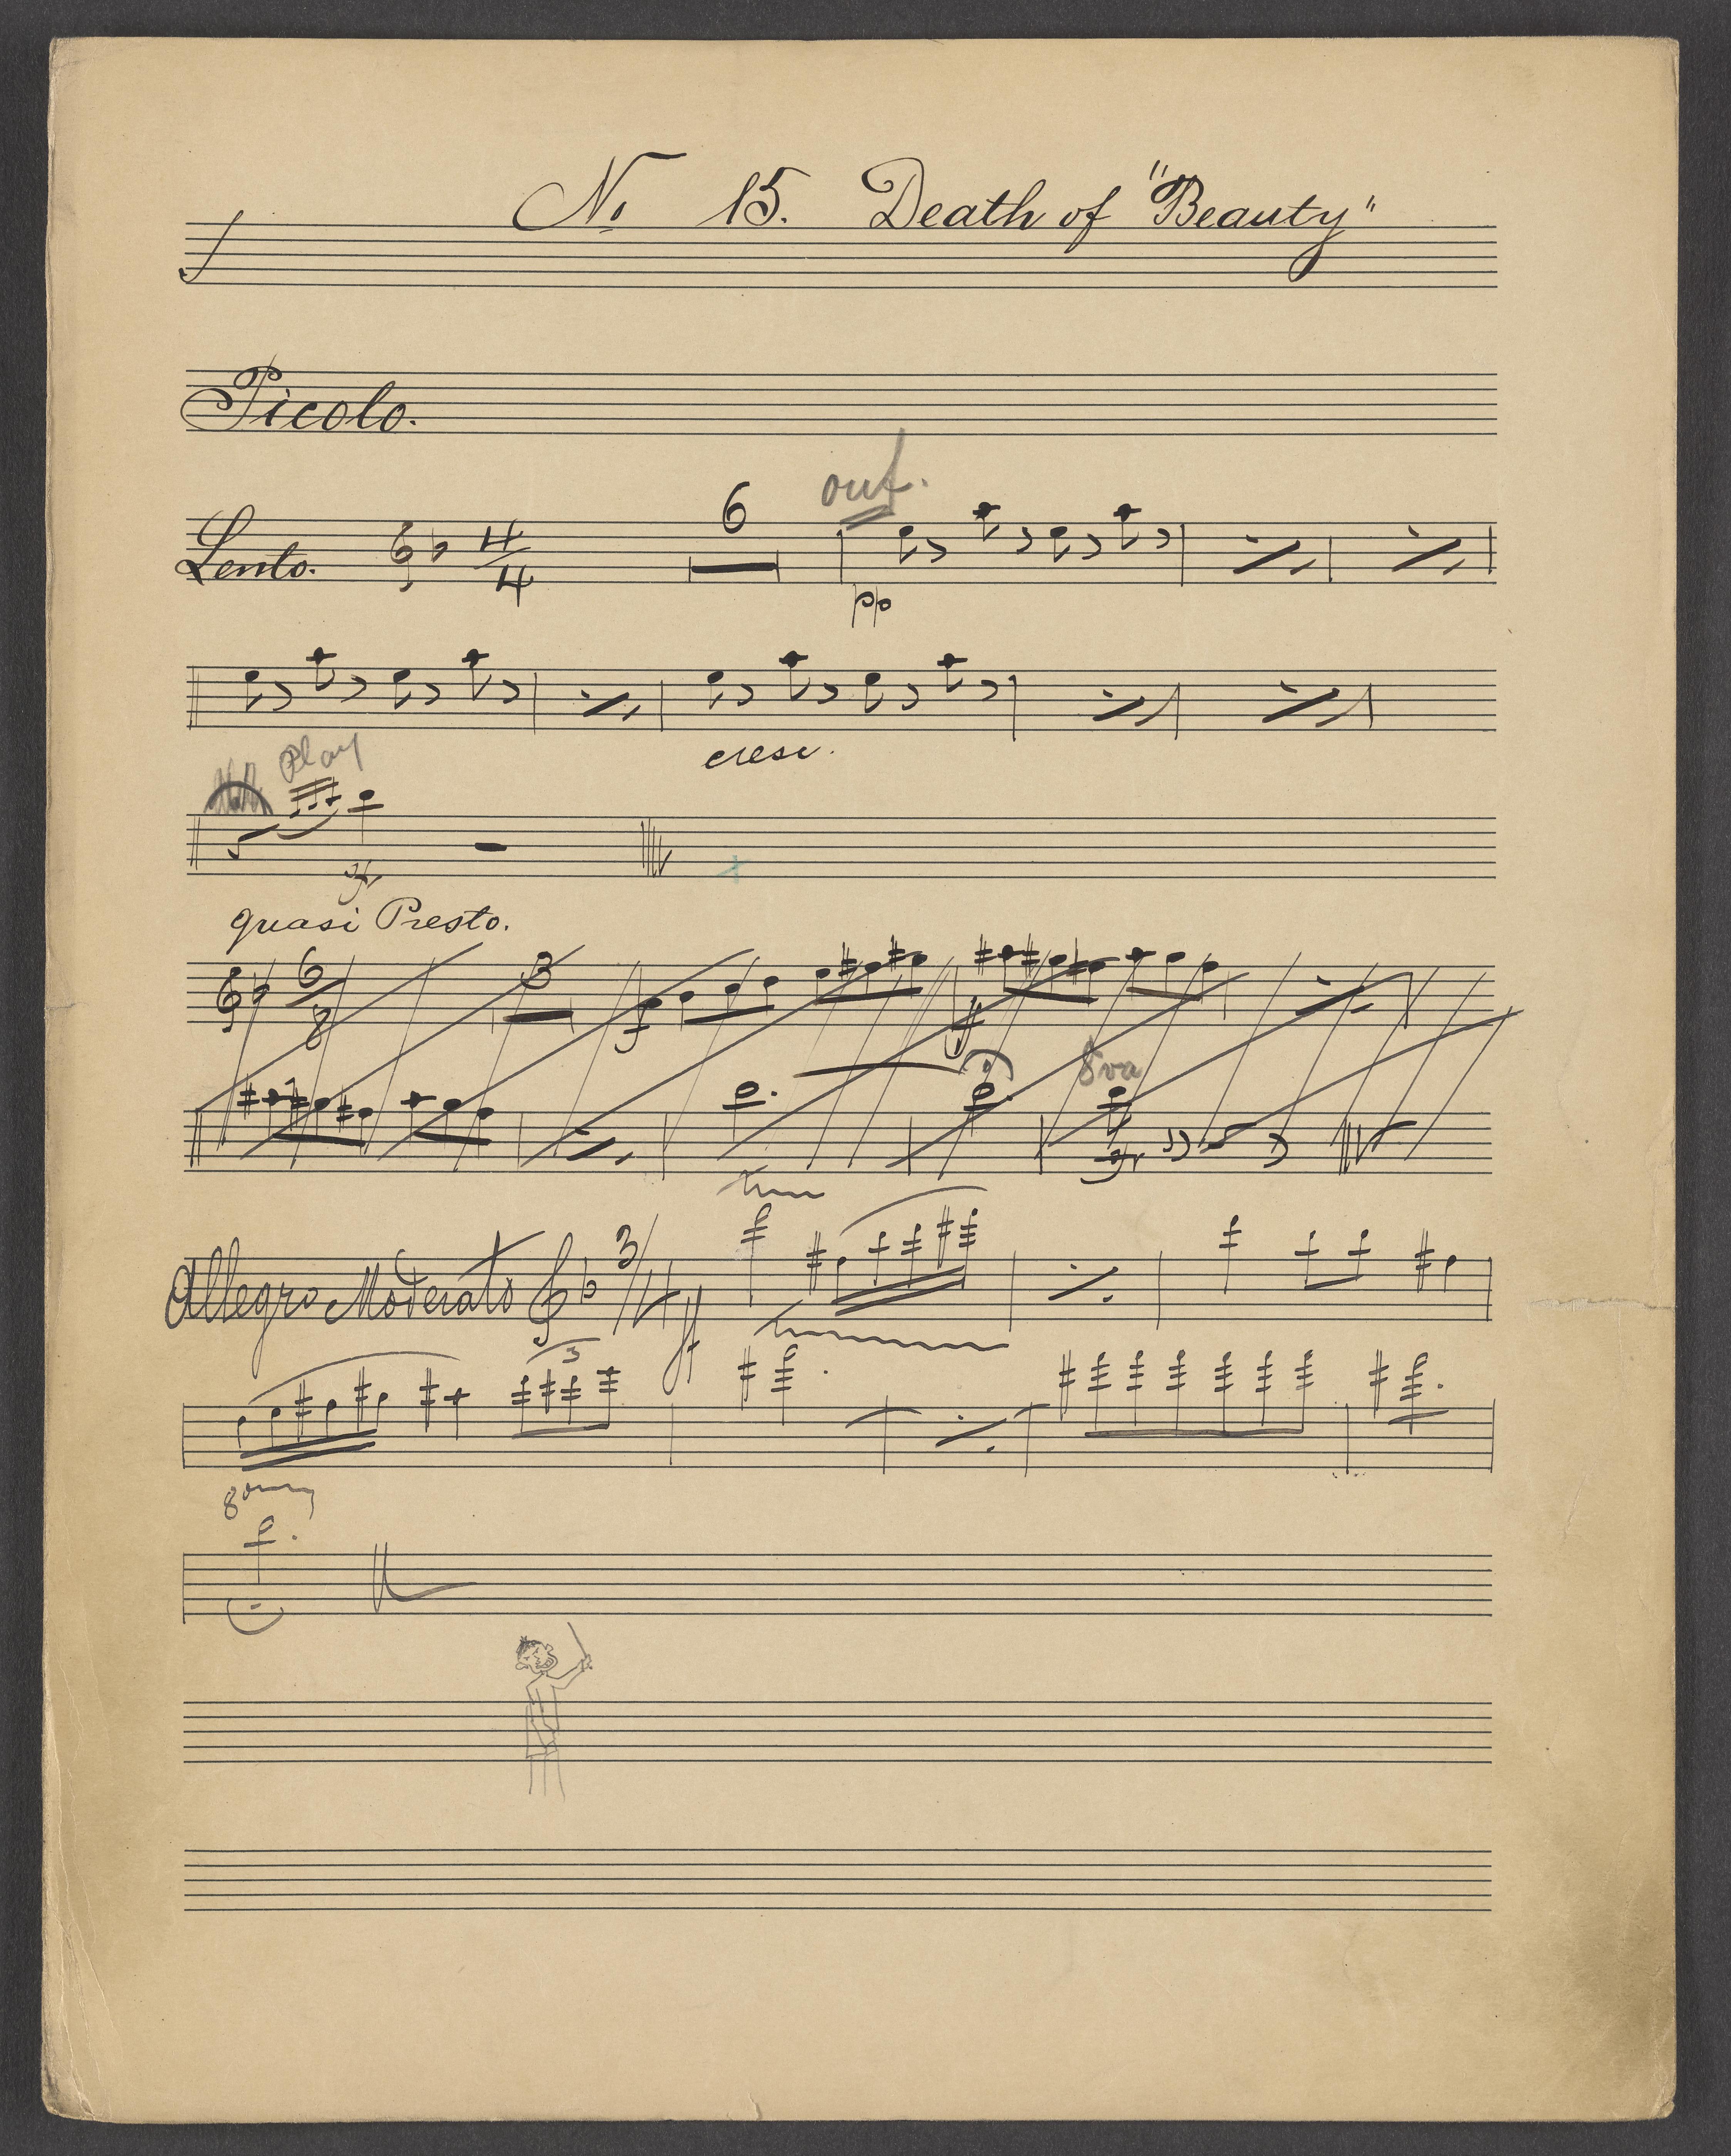 No 15. Death of "Beauty"
Picolo.
out.
6
Lento. 4/4
pp
cresc.
Play
sfz
quasi Presto.
6/8 3
f
ff
8va
sfz
Allegro Moderato 3/4
ff
3
8